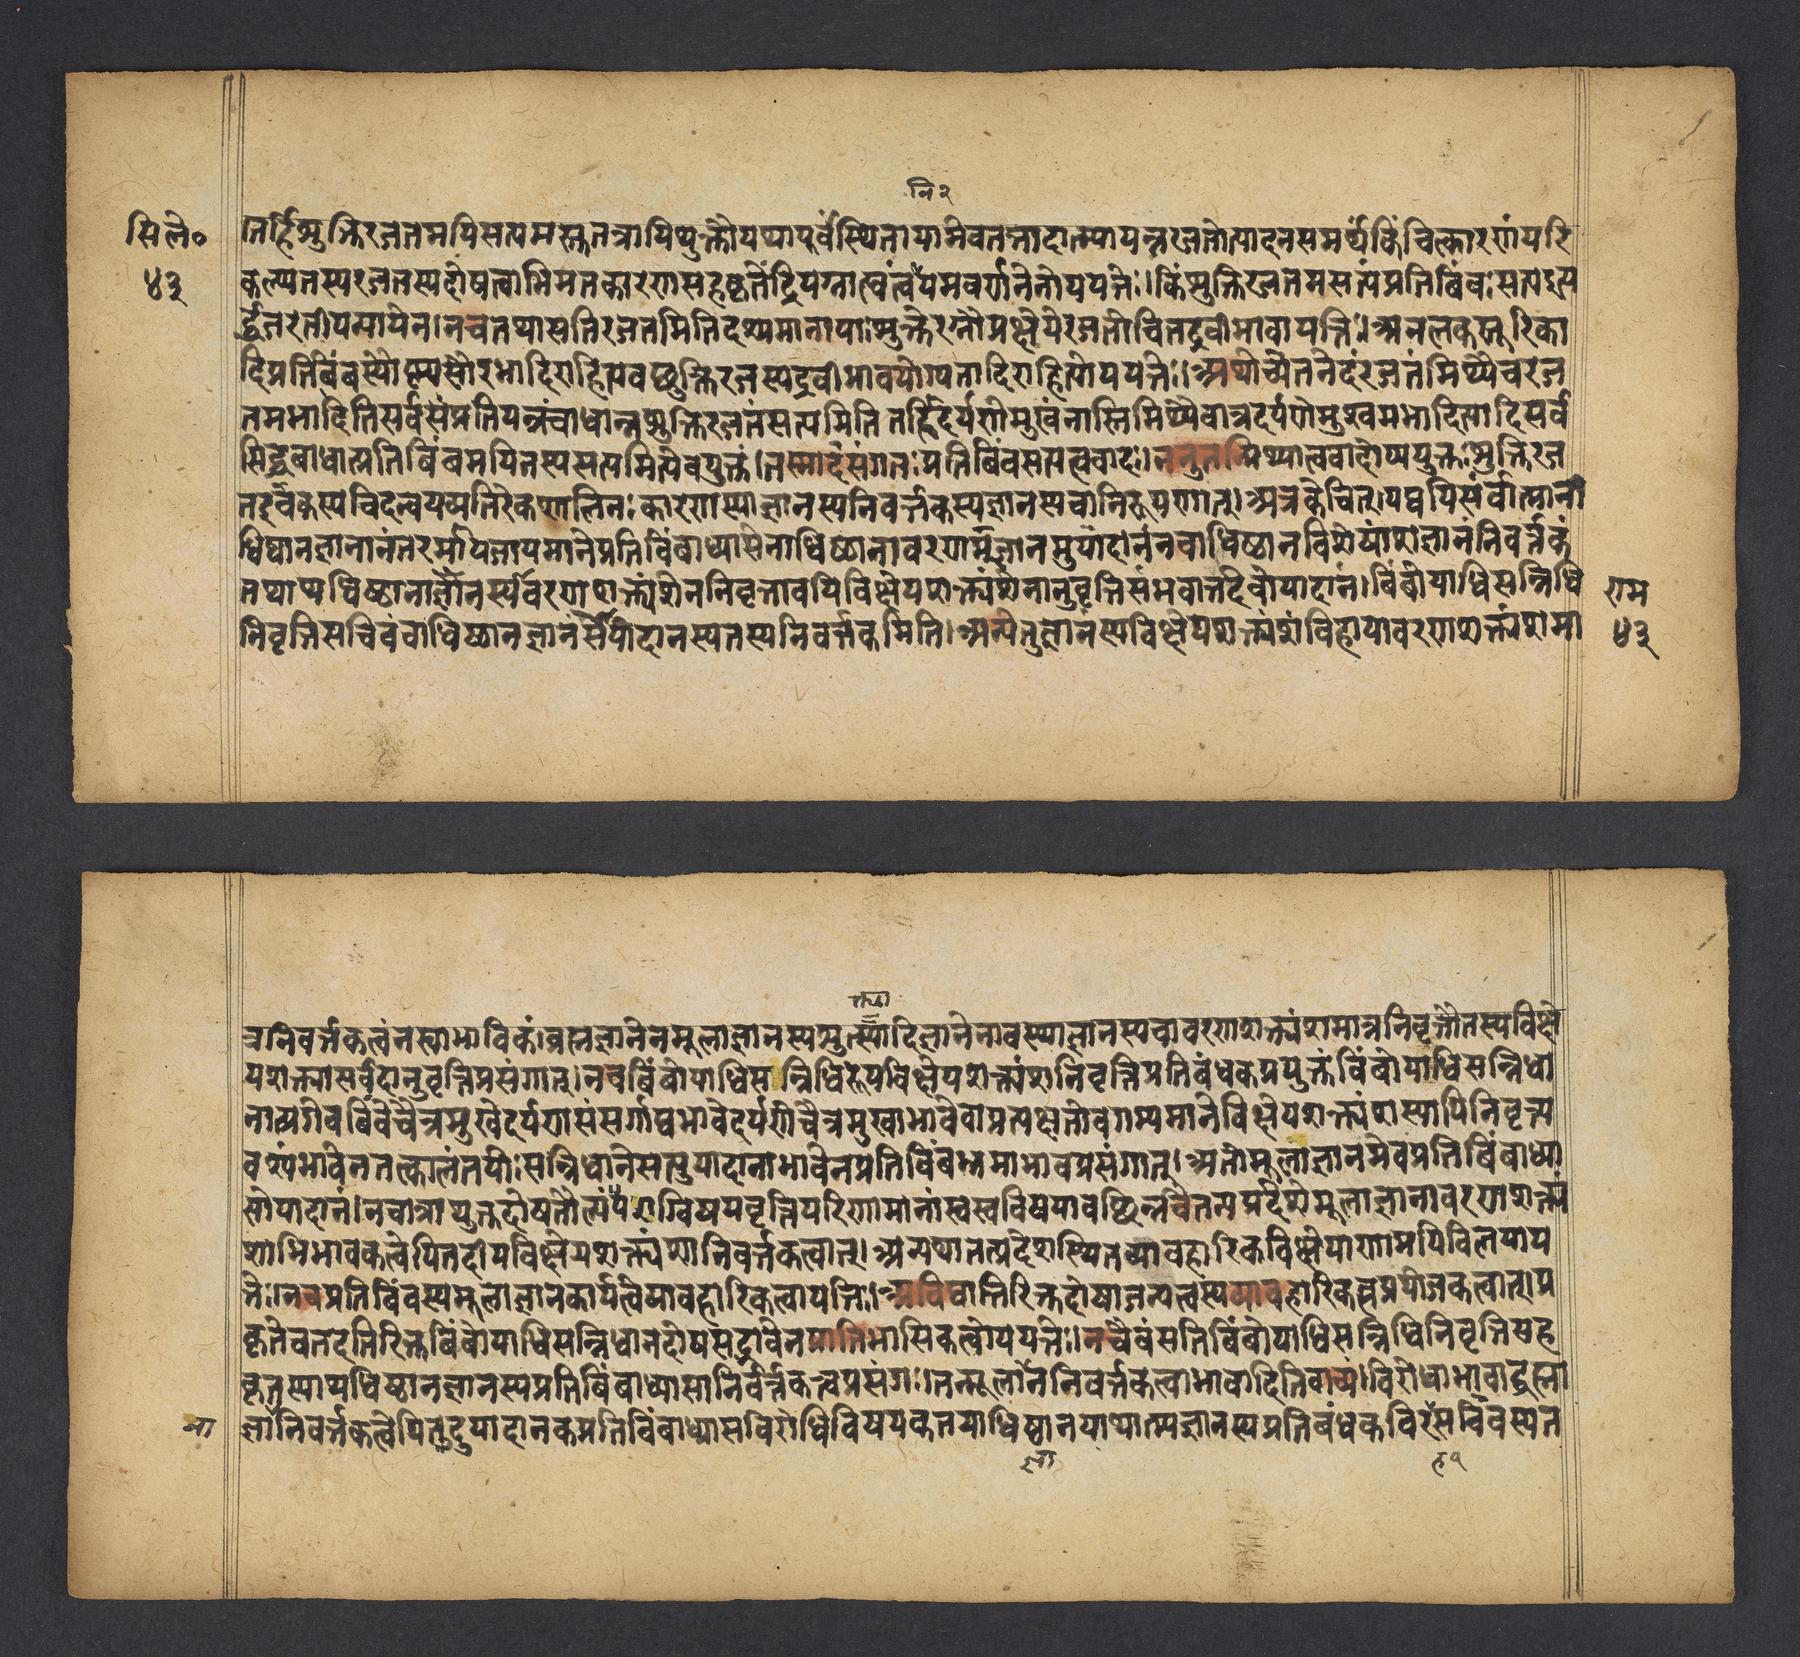 नि २
सि ले०
४३
तर्हि शुक्तिरजतमपि सत्यमस्तु तत्रापि शुक्तौ यथापूर्वं स्थितायामेव तत्तादात्म्यापन्नरजतोत्पादनसमर्थं किंचित्कारणं परि
कल्प्य तस्य रजतस्य दोषत्वाभिमतकारणसहकृतेंद्रियग्राह्यत्वं तथेयमवर्णनेनोपपत्तेः। किं शुक्तिरजतमसत्यं प्रतिबिंबः सत्य इत्य
र्द्धजरतीयन्यायेन। न च तथा सति रजतमिति दृश्यमानायाः शुक्तेरग्नौ प्रक्षेपे रजतोचितद्रवीभावापत्तिः। अनलकस्तूरिका
दिप्रतिबिंबस्यौष्ण्यसौरभादिराहित्यवच्छुक्तिरजतस्य द्रवीभावयोग्यतादिराहित्योपपत्तेः। अथोच्येत नेदं रजतं मिथ्यैव रज
तमभादिति सर्वसंप्रतिपन्नबाधान्न शुक्तिरजतं सत्यमिति तर्हि दर्पणे मुखं नास्ति मिथ्यैवात्र दर्पणे मुखमभादित्यादिसर्व
सिद्धबाधात्प्रतिबिंबमपि तस्यासत्यमित्येव युक्तं। तस्मादसंगतः प्रतिबिंबसत्यत्ववादः। ननु तन्मिथ्यात्ववादोप्ययुक्तः शुक्तिरज
त इव कस्यचिदन्वयव्यतिरेकशालिनः कारणस्याज्ञानस्य निवर्त्तकस्य ज्ञानस्य चानिरूपणात्। अत्र केचित्। यद्यपि सर्वात्मना
धिष्ठानज्ञानानंतरमपि जायमाने प्रतिबिंबाध्यासे नाधिष्ठानावरणमज्ञानमुपादानं न वाधिष्ठानविशेषांशज्ञानं निवर्त्तकं
तथाप्यधिष्ठानाज्ञानस्यावरणशक्त्यंशेन निवृत्तावपि विक्षेपशक्त्यंशेनानुवृत्तिसंभवात्तदेवोपादानं। बिंबोपाधिसन्निधि
राम
४३
निवृत्तिसचिवं चाधिष्ठानज्ञानं सोपादानस्य तस्य निवर्त्तकमिति। अन्ये तु ज्ञानस्य विक्षेपशक्त्यंशं विहायावरणशक्त्यंशमा
त्र निवर्त्तकत्वं न स्वाभाविकं। ब्रह्मज्ञानेन मूलाज्ञानस्य शुक्त्यादिज्ञानेनावस्थाज्ञानस्य चावरणशक्त्यंशमात्रनिवृत्तौ तस्य विक्षे
पशक्त्या सर्वदानुवृत्तिप्रसंगात्। न च बिंबोपाधिसन्निधिरूपविक्षेपशक्त्यंशनिवृत्तिप्रतिबंधकप्रयुक्तं बिंबोपाधिसन्निधा
नात्प्रागेव बिंबे चैत्रमुखे दर्पणसंसर्गाद्यभावे दर्पणे चैत्रमुखाभावे वा प्रत्यक्षतोवगम्यमाने विक्षेपशक्त्यंशस्यापि निवृत्त्य
वश्यंभावेन तत्कालं तयोः सन्निधाने सत्युपादानाभावेन प्रतिबिंबभ्रमाभावप्रसंगात्। अतो मूलाज्ञानमेव प्रतिबिंबाध्या
सोपादानं। न चात्राप्युक्तदोषतौल्यं पराग्विषयवृत्तिपरिणामानां स्वस्वविषयावच्छिन्नचैतन्यप्रदेशे मूलाज्ञानावरणशक्त्यं
शाभिभावकत्वेपि तदीयविक्षेपशक्त्यंशानिवर्त्तकत्वात्। अन्यथा तत्प्रदेशस्थितव्यावहारिकविक्षेपाणामपि विलयाप
त्तेः। न च प्रतिबिंबस्य मूलाज्ञानकार्यत्वे व्यावहारिकत्वापत्तिः। अविद्यातिरिक्तदोषाजन्यत्वस्य व्यावहारिकत्वप्रयोजकत्वात्। प्र
कृते च तदतिरिक्तबिंबोपाधिसन्निधानदोषसद्भावेन प्रातिभासिकत्वोपपत्तेः। न चैवं सति बिंबोपाधिसन्निधिनिवृत्तिसह
कृतस्याप्यधिष्ठानज्ञानस्य प्रतिबिंबाध्यासानिवर्त्तकत्वप्रसंगः। तन्मूलाज्ञाननिवर्त्तकत्वाभावादिति वाच्यं। विरोधाभावाद्ब्रह्मा
ज्ञाननिवर्त्तकत्वेपि तदुपादानकप्रतिबिंबाध्यासविरोधिविषयकतयाधिष्ठानयाथात्म्यज्ञानस्य प्रतिबंधकविरहसचिवस्य त